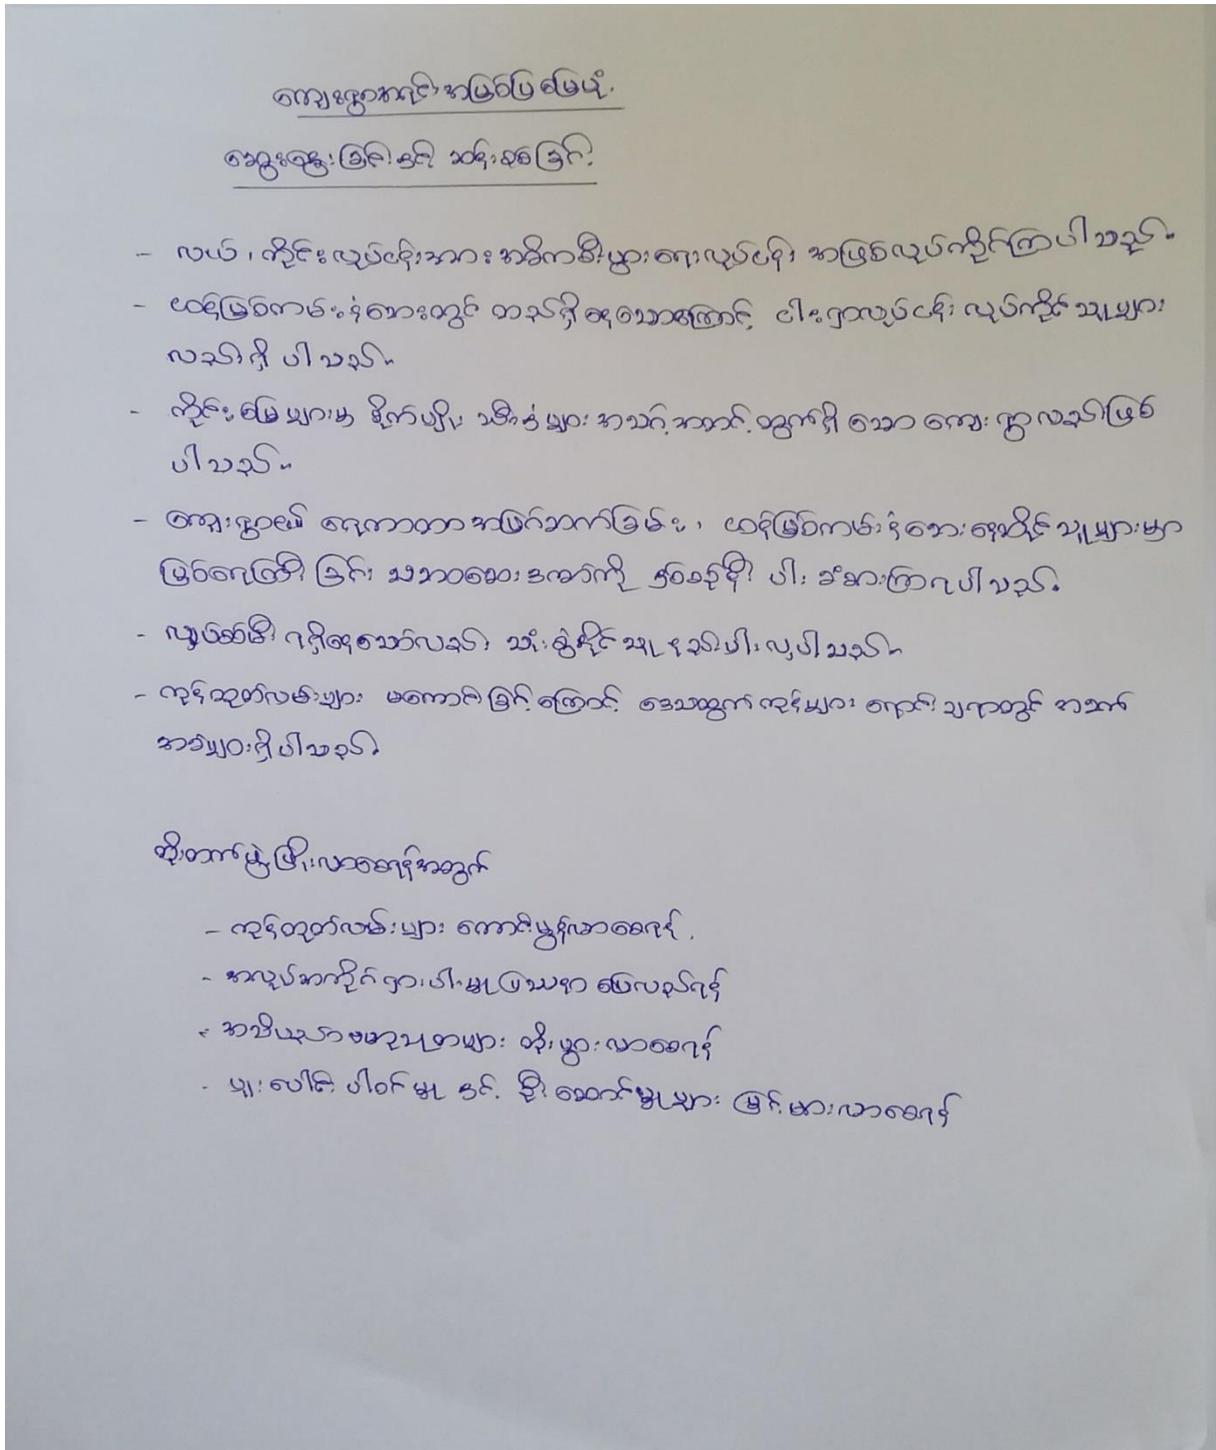 ကျေးရွာအရင်းအမြစ်ပြမြေပုံ
ဆွေးနွေးခြင်းနှင့် ဆန်းစစ်ခြင်း
- လယ်၊ ကိုင်းလုပ်ငန်းအား အဓိကစီးပွားရေးလုပ်ငန်း အဖြစ်လုပ်ကိုင်ကြပါသည်။
- ဟင်္သာမြစ်ကမ်းနံဘေးတွင် တည်ရှိနေသောကြောင့် ငါးရှာလုပ်ငန်း လုပ်ကိုင်သူများ
လည်းရှိပါသည်။
- ကိုင်းမြေများမှ စိုက်ပျိုးသီးနှံများ အသင့်အတင့်ထွက်ရှိသော ကျေးရွာလည်းဖြစ်
ပါသည်။
- ကျေးရွာငယ် ရေကာတာ အဖြတ်အောက်ခြမ်း၊ မြစ်ကမ်းနံဘေးနေထိုင်သူများမှာ
မြစ်ရေကြီးခြင်း သဘာဝဘေးဒဏ်ကို နှစ်စဉ်နီးပါး ခံစားကြရပါသည်။
- လျှပ်စစ်မီး ရရှိနေသော်လည်း သုံးစွဲနိုင်သူ နည်းပါးလှပါသည်။
- ကုန်ထုတ်လမ်းများ မကောင်းခြင်းကြောင့် ဒေသထွက်ကုန်များ ရောင်းချရာတွင် အခက်
အခဲများရှိပါသည်။
တိုးတက်ဖွံ့ဖြိုးလာစေရန်အတွက်
- ကုန်ထုတ်လမ်းများ ကောင်းမွန်လာစေရန်
- အလုပ်အကိုင်ရှားပါးမှုပြဿနာ ပြေလည်ရန်
- အသိပညာဗဟုသုတများ တိုးပွားလာစေရန်
- ပူးပေါင်းပါဝင်မှု နှင့် ဦးဆောင်မှုများ မြင့်မားလာစေရန်